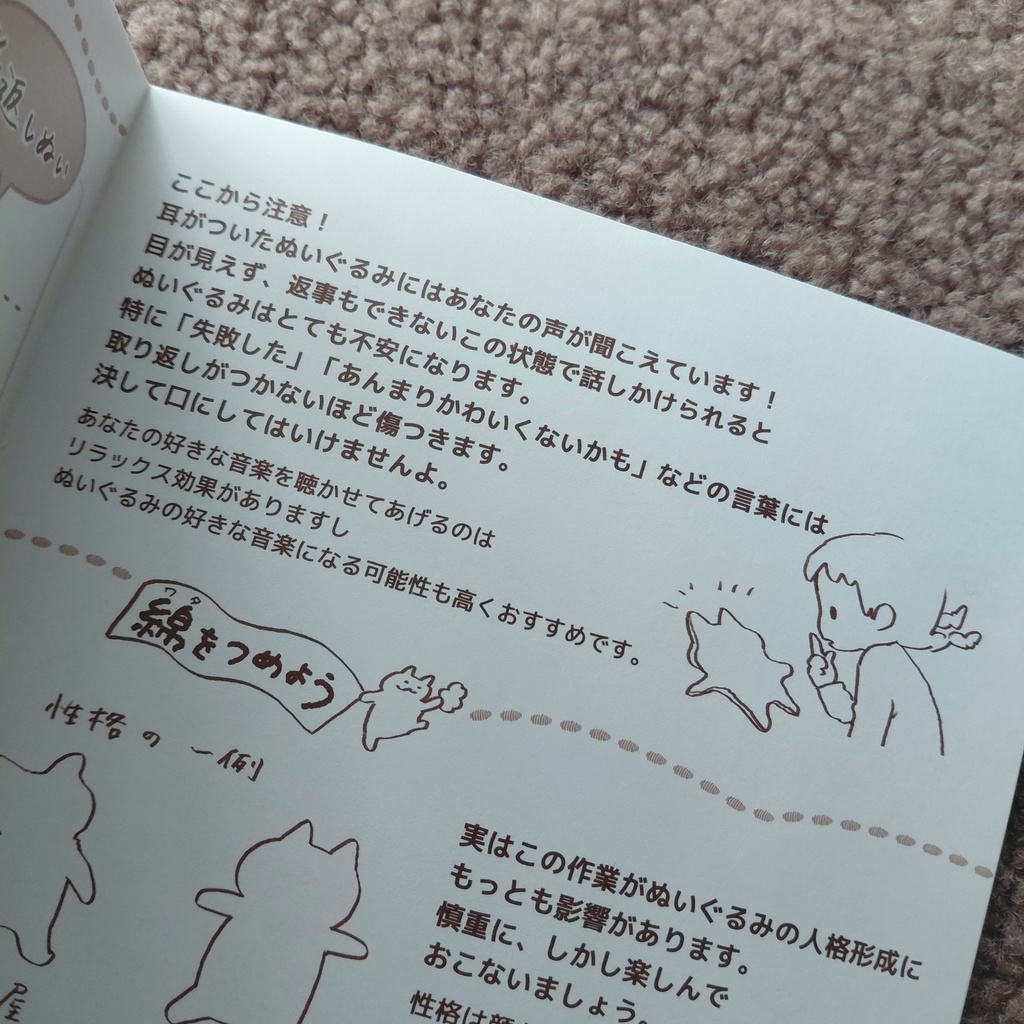 返しぬい
ここから注意！
耳がついたぬいぐるみにはあなたの声が聞こえています！
目が見えず、返事もできないこの状態で話しかけられると
ぬいぐるみはとても不安になります。
特に「失敗した」「あんまりかわいくないかも」などの言葉には
取り返しがつかないほど傷つきます。
決して口にしてはいけませんよ。
あなたの好きな音楽を聴かせてあげるのは
リラックス効果がありますし
ぬいぐるみの好きな音楽になる可能性も高くおすすめです。
ワタ
綿をつめよう
性格の一例
屋
実はこの作業がぬいぐるみの人格形成に
もっとも影響があります。
慎重に、しかし楽しんで
おこないましょう。
性格は顔